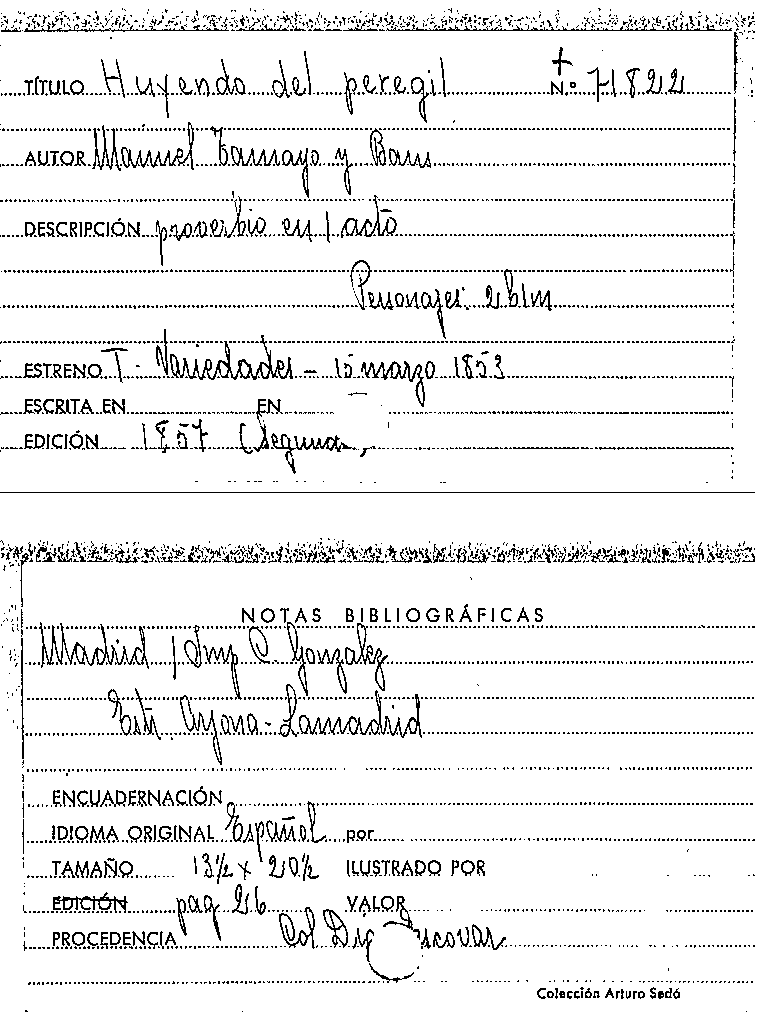 TÍTULO Huyendo del peregil N.º 71822
AUTOR Manuel Tamayo y Baus
DESCRIPCIÓN proverbio en 1 acto
Personajes: 2 h 1 m
ESTRENO T. Variedades - 15 marzo 1853
ESCRITA EN EN
EDICIÓN 1857 (Segunda
NOTAS BIBLIOGRÁFICAS
Madrid / Imp C. Gonzalez
Estr. Arjona - Lamadrid
ENCUADERNACIÓN
IDIOMA ORIGINAL Español por
TAMAÑO 13½ x 20½ ILUSTRADO POR
EDICIÓN pag 26 VALOR
PROCEDENCIA Col
Colección Arturo Sedó